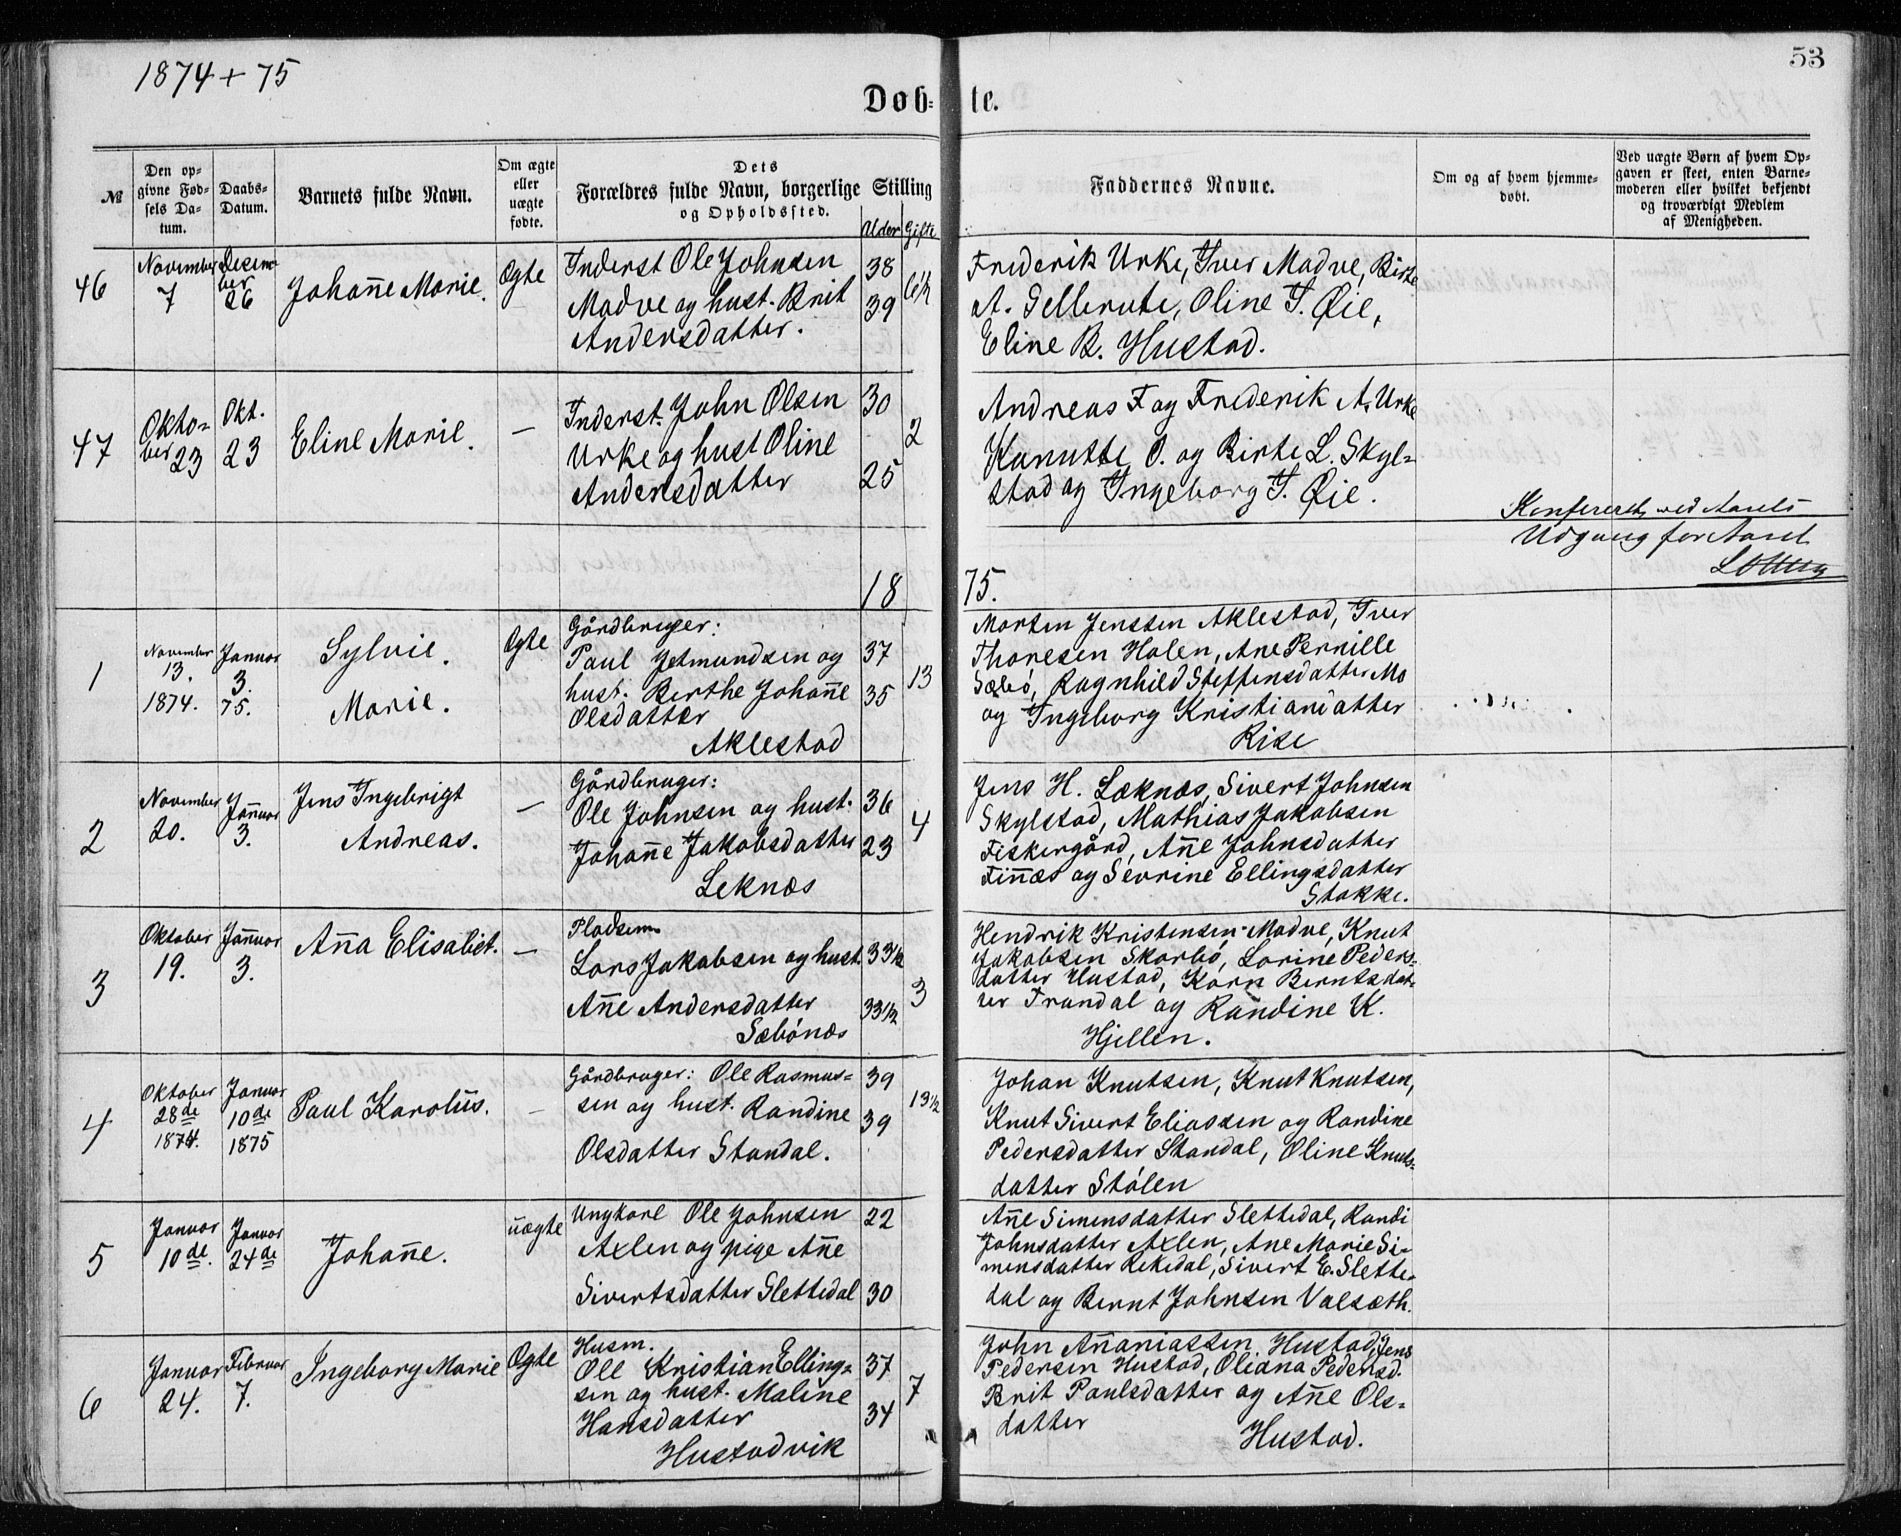 1874 + 75
53
Døb-te.
№
Den op-
givne Fød-
sels Da-
tum.
Daabs-
Datum.
Barnets fulde Navn.
Om ægte
eller
uægte
fødte.
Dets
Forældres fulde Navn, borgerlige Stilling
og Opholdssted.
Alder
Gifte
Faddernes Navne.
Om og af hvem hjemme-
døbt.
Ved uægte Børn af hvem Op-
gaven er skeet, enten Barne-
moderen eller hvilket bekjendt
og troværdigt Medlem
af Menigheden.
46
November
7
Desem-
ber
26
Johan̄e Marie.
Ægte
Inderst Ole Johnsen
Madve og hust. Brit
Andersdatter.
38
39
6½
Frederik Urke, Iver Madve, Birte
A. Jellerute, Oline T. Øie,
Eline B. Hustad.
47
Okto-
ber 23
Okt.
23
Eline Marie.
—
Inderst. John Olsen
Urke og hust Oline
Andersdatter
30
25
2
Andreas F og Frederik A. Urke
Kanutte O. og Birte L. Skyl-
stad og Ingeborg T. Øie.
Konfereret ved Aarets
Udgang for Aaret
1875.
1
November
13.
1874.
Januar
3.
75.
Sylvie.
Marie.
Ægte
Gårdbruger:
Paul Jetmundsen og
hust. Berthe Johan̄e
Olsdatter
Aklestad
37
35
13
Morten Jenssen Aklestad, Iver
Thoresen Holen, Ane Pernille
Sæbø, Ragnhild Steffensdatter Mo
og Ingeborg Kristianiatter
Rise
2
November
20.
Jan̄uar
3.
Jens Ingebrigt
Andreas.
—
Gårdbruger:
Ole Johnsen og hust.
Johan̄e Jakobsdatter
Leknæs
36
23
4
Jens H. Læknæs, Sivert Johnsen
Skylstad, Mathias Jakobsen
Fiskergård, An̄e Johnsdatter
Fin̄æs og Sevrine Ellingsdatter
Stokke.
3
Oktober
19.
Jan̄uar
3.
An̄a Elisabet.
—
Pladsem
Lars Jakobsen og hust.
An̄e Andersdatter
Sæbønæs
33½
33½
3
Hendrik Kristensen Madve, Knut
Jakobsen Skarbø, Lorine Peders-
datter Hustad, Karn Berntsdat-
ter Trandal og Randine K.
Hjellen.
4
Oktober
28de
1874.
Januar
10de
1875
Paul Karolus.
—
Gårdbruger: Ole Rasmus-
sen og hust. Randine
Olsdatter Standal.
39
39
13½
Johan Knutsen, Knut Knutsen,
Knut Sivert Eliassen og Randine
Pedersdatter Standal, Oline Knuts-
datter Stølen
5
Januar
10de.
Januar
24de
Johan̄e.
uægte
Ungkarl Ole Johnsen
Axlen og pige An̄e
Sivertsdatter Slettedal
22
30
An̄e Simensdatter Slettedal, Randi
Johnsdatter Axlen, Ane Marie Si-
mensdatter Rekedal, Sivert E. Slette-
dal og Bernt Johnsen Valsæth.
6
Januar
24.
Februar
7.
Ingeborg Marie
Ægte
Husm.
Ole Kristian Elling-
sen og hust. Maline
Hansdatter
Hustadvik
37
34
7
John An̄aniassen Hustad, Jens
Pedersen Hustad, Oliana Pedersd.
Brit Paulsdatter og An̄e Ols-
datter
Hustad.